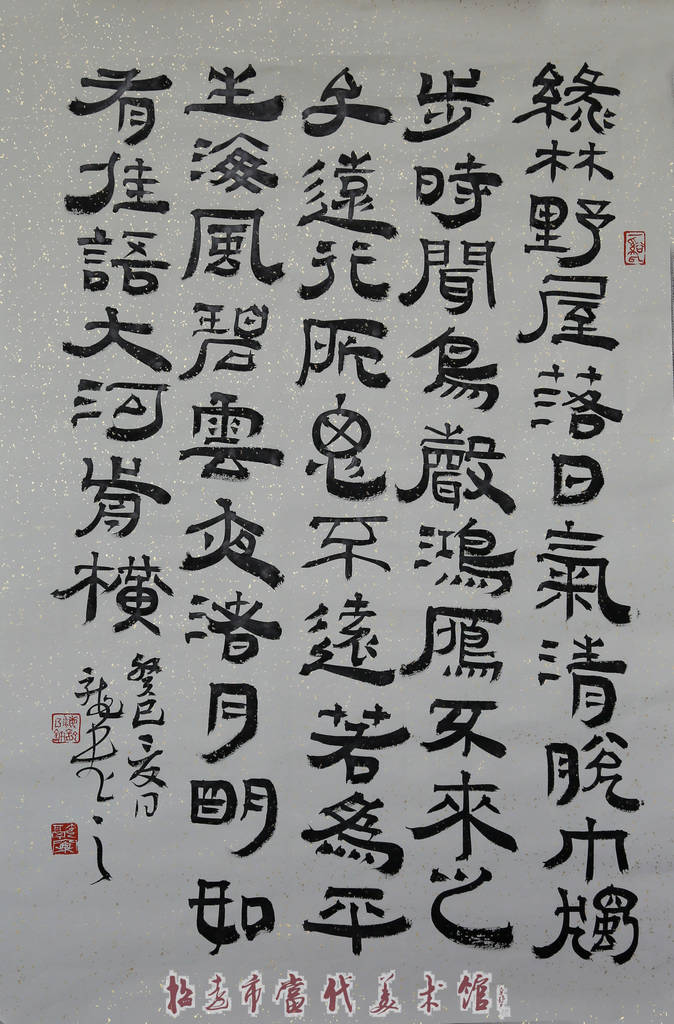 綠林野屋落日氣清脫巾獨
步時聞鳥聲鴻鴈不來之
子遠行所思不遠若為平
生海風碧雲夜渚月明如
有佳語大河前橫
癸巳
書之
招远市當代美术馆